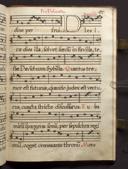 dine per fru ter
cra dies illa, solvet saeclum in favilla, te
ste David cum Sybilla. Quantus tre
mor est futurus, quando judex est ventu
rus, cuncta stricte discussurus. Tu ba
mirum spargens sonum, per sepulchra regi
onum, coget omnes ante thronum. Mors